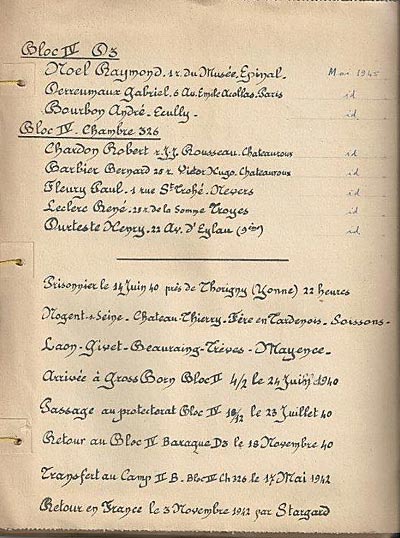 Bloc IV D3
Noel Raymond. 1 r. du Musée. Epinal. Mai 1945
Derreumaux Gabriel. 6 Av. Emile Acollas. Paris id
Bourbon André. Ecully. id
Bloc IV. Chambre 326
Chardon Robert r. J.J. Rousseau. Chateauroux id
Barbier Bernard 28 r. Victor Hugo. Chateauroux id
Fleury Paul. 1 rue St Trohé. Nevers id
Leclerc René. 28 r. de la Somme Troyes id
Durteste Henry. 22 Av. d'Eylau id
Prisonnier le 14 Juin 40 près de Thorigny (Yonne) 22 heures
Nogent-s-Seine. Chateau-Thierry. Fère en Tardenois. Soissons.
Laon-Givet-Beauraing-Trèves-Mayence.
Arrivée à Gross Born Bloc II 4/2 le 24 Juin 1940
Passage au protectorat Bloc IV 18/12 le 23 Juillet 40
Retour au Bloc IV Baraque D3 le 18 Novembre 40
Transfert au Camp II B. Bloc IV Ch 326. le 17 Mai 1942
Retour en France le 3 Novembre 1942 par Stargard